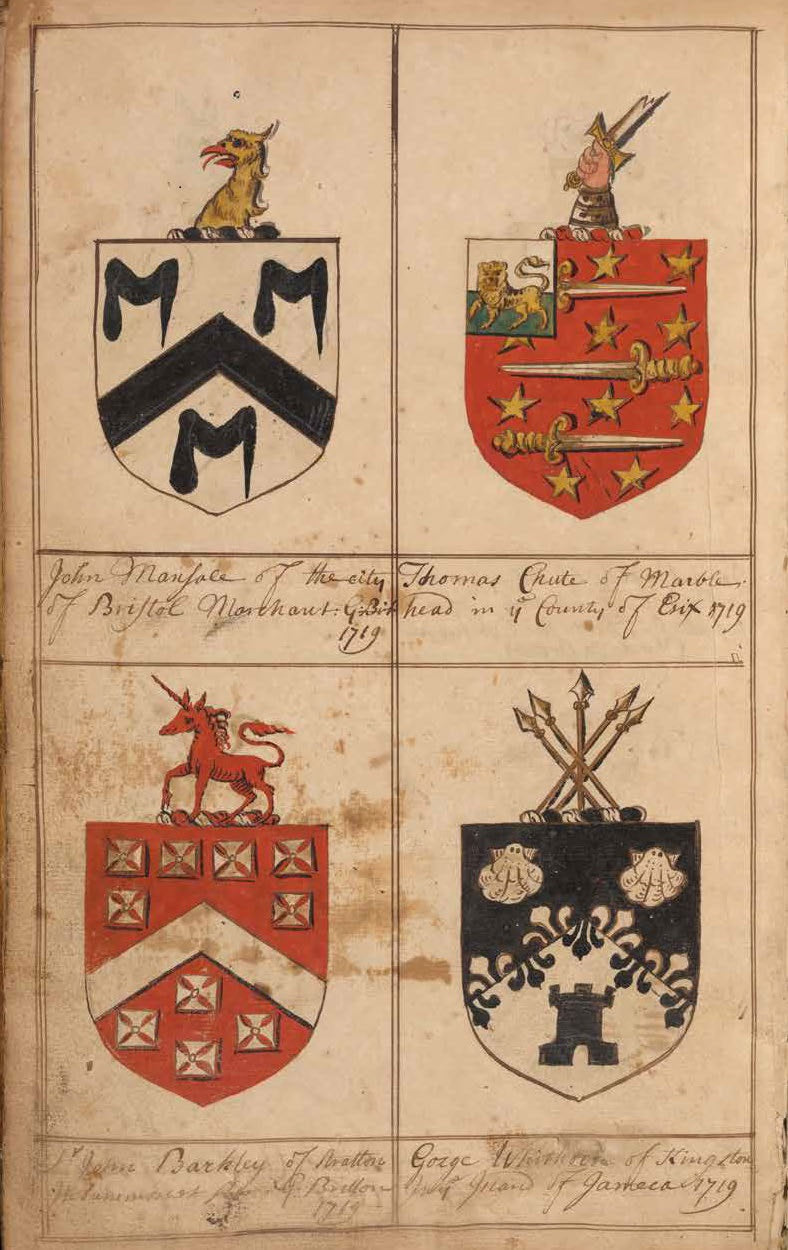 John Mansale of the city
of Bristol Marchant: G: Brit
1719
Thomas Chute of Marble:
head in yͤ County of Esix 1719
Sʳ John Barkley of Bratton
G: Britton
1719
Gorge of Kingston
Island of Jameca 1719